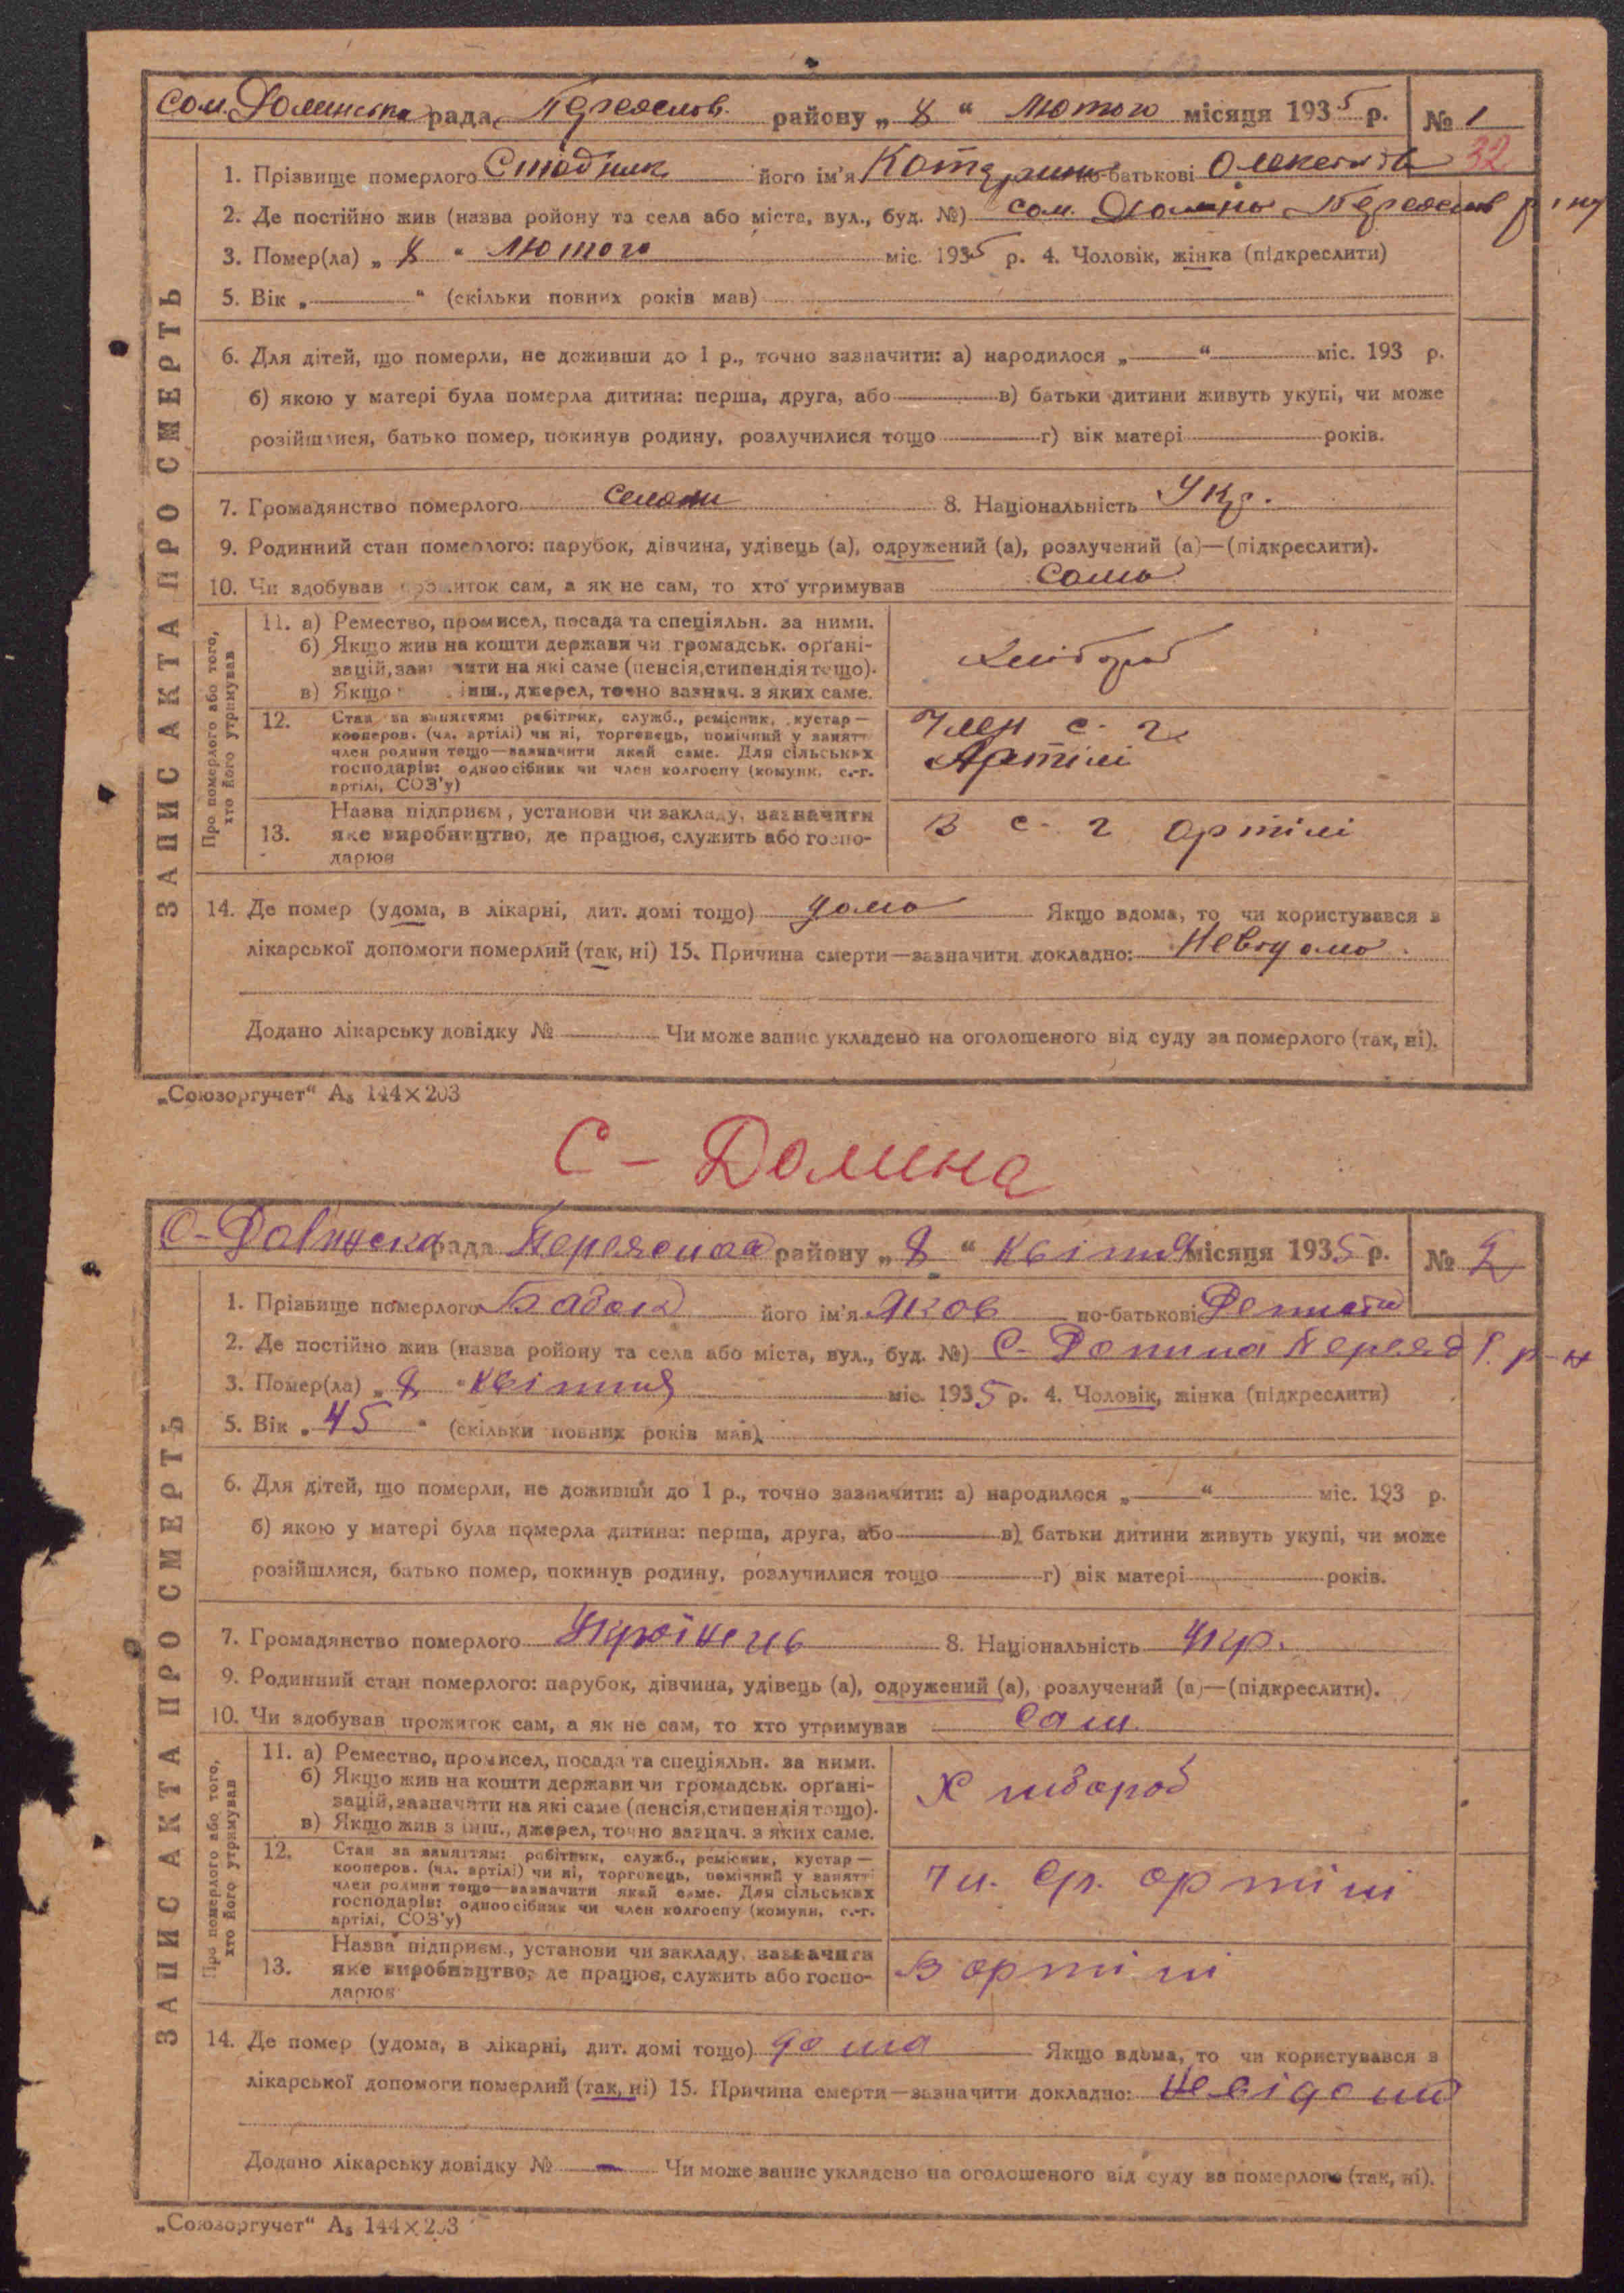 сом. Долинська рада, Переяслов. району „ 8 “ Лютого місяця 1935 р. № 1
32
1. Прізвище померлого його ім'я Катерина по-батькові
2. Де постійно жив (назва ройону та села або міста, вул., буд. №) сом. Долина Переяслов
3. Помер(ла) „ 8 “ Лютого міс. 1935 р. 4. Чоловік, жінка (підкреслити)
5. Вік „ “ (скільки повних років мав)
6. Для дітей, що померли, не доживши до 1 р., точно зазначити: а) народилося „ “ міс. 193 р.
б) якою у матері була померла дитина: перша, друга, або в) батьки дитини живуть укупі, чи може
розійшлися, батько помер, покинув родину, розлучилися тощо г) вік матері років.
7. Громадянство померлого 8. Національність Укр.
9. Родинний стан померлого: парубок, дівчина, удівець (а), одружений (а), розлучений (а)—(підкреслити).
10. Чи здобував прожиток сам, а як не сам, то хто утримував сама
ЗАПИС АКТА ПРО СМЕРТЬ
Про померлого або того,
хто його утримував
11. а) Ремество, промисел, посада та спеціяльн. за ними.
б) Якщо жив на кошти держави чи громадськ. орґані-
зацій, зазначити на які саме (пенсія, стипендія тощо).
в) Якщо інш., джерел, точно вазнач. з яких саме.
Хлібороб
12. Стан за заняттям: робітник, служб., ремісник, кустар—
кооперов. (чл. артілі) чи ні, торговець, помічний у занятт
член родини тощо—зазначити який саме. Для сільських
господарів: одноосібник чи член колгоспу (комуни, с.-г.
артілі, СОЗ'у)
Член с. г.
Артілі
13. Назва підприєм., установи чи закладу, зазначити
яке виробництво, де працює, служить або госпо-
дарює
В с. г артілі
14. Де помер (удома, в лікарні, дит. домі тощо) дома Якщо вдома, то чи користувався з
лікарської допомоги померлий (так, ні) 15. Причина смерти—зазначити докладно: Невідомо.
Додано лікарську довідку № Чи може запис укладено на оголошеного від суду за померлого (так, ні).
„Союзоргучет“ А₅ 144×203
С – Долина
рада району „ 8 “ Квітня місяця 1935 р. № 2
1. Прізвище померлого Бабак його ім'я Яков по-батькові
2. Де постійно жив (назва ройону та села або міста, вул., буд. №) С- Долина Переясл. р-н
3. Помер(ла) „ 8 “ Квітня міс. 1935 р. 4. Чоловік, жінка (підкреслити)
5. Вік „ 45 “ (скільки повних років мав)
6. Для дітей, що померли, не доживши до 1 р., точно зазначити: а) народилося „ “ міс. 193 р.
б) якою у матері була померла дитина: перша, друга, або в) батьки дитини живуть укупі, чи може
розійшлися, батько помер, покинув родину, розлучилися тощо г) вік матері років.
7. Громадянство померлого Українець 8. Національність Укр.
9. Родинний стан померлого: парубок, дівчина, удівець (а), одружений (а), розлучений (а)—(підкреслити).
10. Чи здобував прожиток сам, а як не сам, то хто утримував Сам
ЗАПИС АКТА ПРО СМЕРТЬ
Про померлого або того,
хто його утримував
11. а) Ремество, промисел, посада та спеціяльн. за ними.
б) Якщо жив на кошти держави чи громадськ. орґані-
зацій, зазначити на які саме (пенсія, стипендія тощо).
в) Якщо жив з інш., джерел, точно вазнач. з яких саме.
Хлібороб
12. Стан за заняттям: робітник, служб., ремісник, кустар—
кооперов. (чл. артілі) чи ні, торговець, помічний у занятті
член родини тощо—зазначити який саме. Для сільських
господарів: одноосібник чи член колгоспу (комуни, с.-г.
артілі, СОЗ'у)
Чл. артілі
13. Назва підприєм., установи чи закладу, зазначити
яке виробництво, де працює, служить або госпо-
дарює
В артілі
14. Де помер (удома, в лікарні, дит. домі тощо) дома Якщо вдома, то чи користувався з
лікарської допомоги померлий (так, ні) 15. Причина смерти—зазначити докладно:
Додано лікарську довідку № – Чи може запис укладено на оголошеного від суду за померлого (так, ні).
„Союзоргучет“ А₅ 144×203